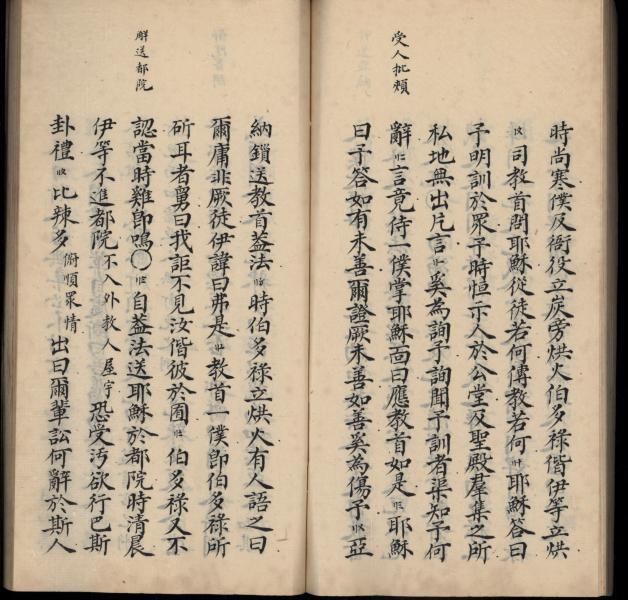 受人批頰
時尚寒僕及衙役立炭旁烘火伯多祿偕伊等立烘
司教首問耶穌從徒若何傳教若何耶穌答曰
予明訓於眾予時恒示人於公堂及聖殿羣集之所
私地無出片言奚為詢予詢聞予訓者渠知予何
辭言竟侍一僕掌耶穌面曰應教首如是耶穌
曰予答如有未善爾證厥未善如善奚為傷予亞
觧送都院
納鎖送教首葢法時伯多祿立烘火有人語之曰
爾庸非厥徒伊諱曰弗是教首一僕即伯多祿所
斫耳者舅曰我詎不見汝偕彼於囿伯多祿又不
認當時雞即鳴〇自葢法送耶穌於都院時清晨
伊等不進都院不入外教人屋宇恐受汚欲行巴斯
卦禮比辣多俯順眾情出曰爾輩訟何辭於斯人